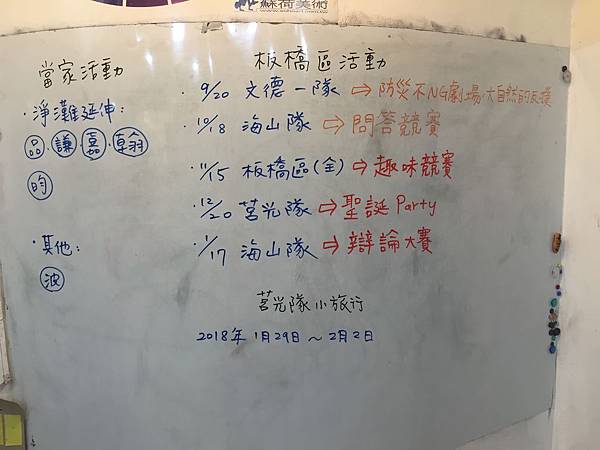 蘇荷美術
當家活動
·淨灘延伸:
品·謙·嘉·翰
昀
·其他:
波
板橋區活動
·9/20 文德一隊⇨防災不NG劇場·大自然的反撲
·10/18 海山隊⇨問答競賽
·11/15 板橋區(全)⇨趣味競賽
·12/20 莒光隊⇨聖誕Party
·1/17 海山隊⇨辯論大賽
莒光隊小旅行
2018年1月29日~2月2日